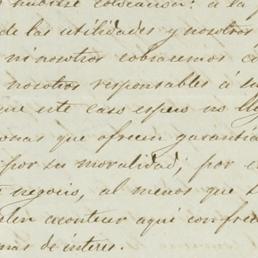 hubiese colocacion: á la
de las utilidades y nosotros
ni nosotros cobraremos
nosotros responsables á su
que este caso espero no
onas que ofrecen garantia
por su moralidad, por
negocio, al menos que
acontecer aqui con frec
mas de interes.